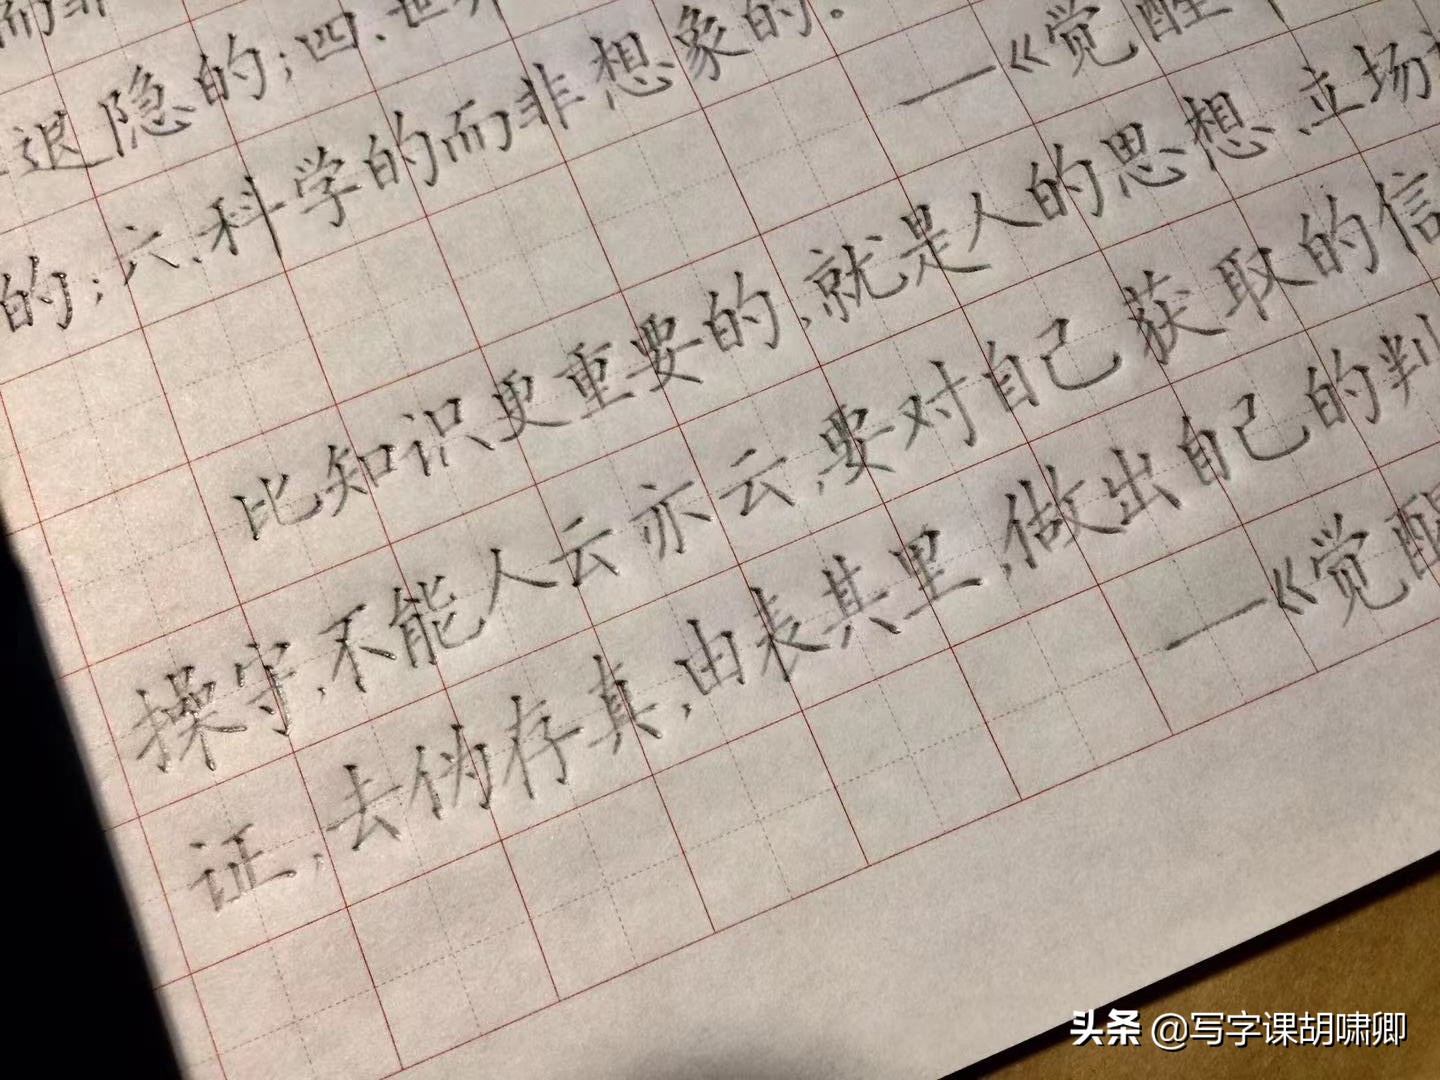 而非
退隐的；四、世界
的；六、科学的而非想象的。
—《觉醒
比知识更重要的，就是人的思想、立场
操守，不能人云亦云，要对自己获取的信
证，去伪存真，由表其里，做出自己的判
—《觉醒
头条 @写字课胡啸卿